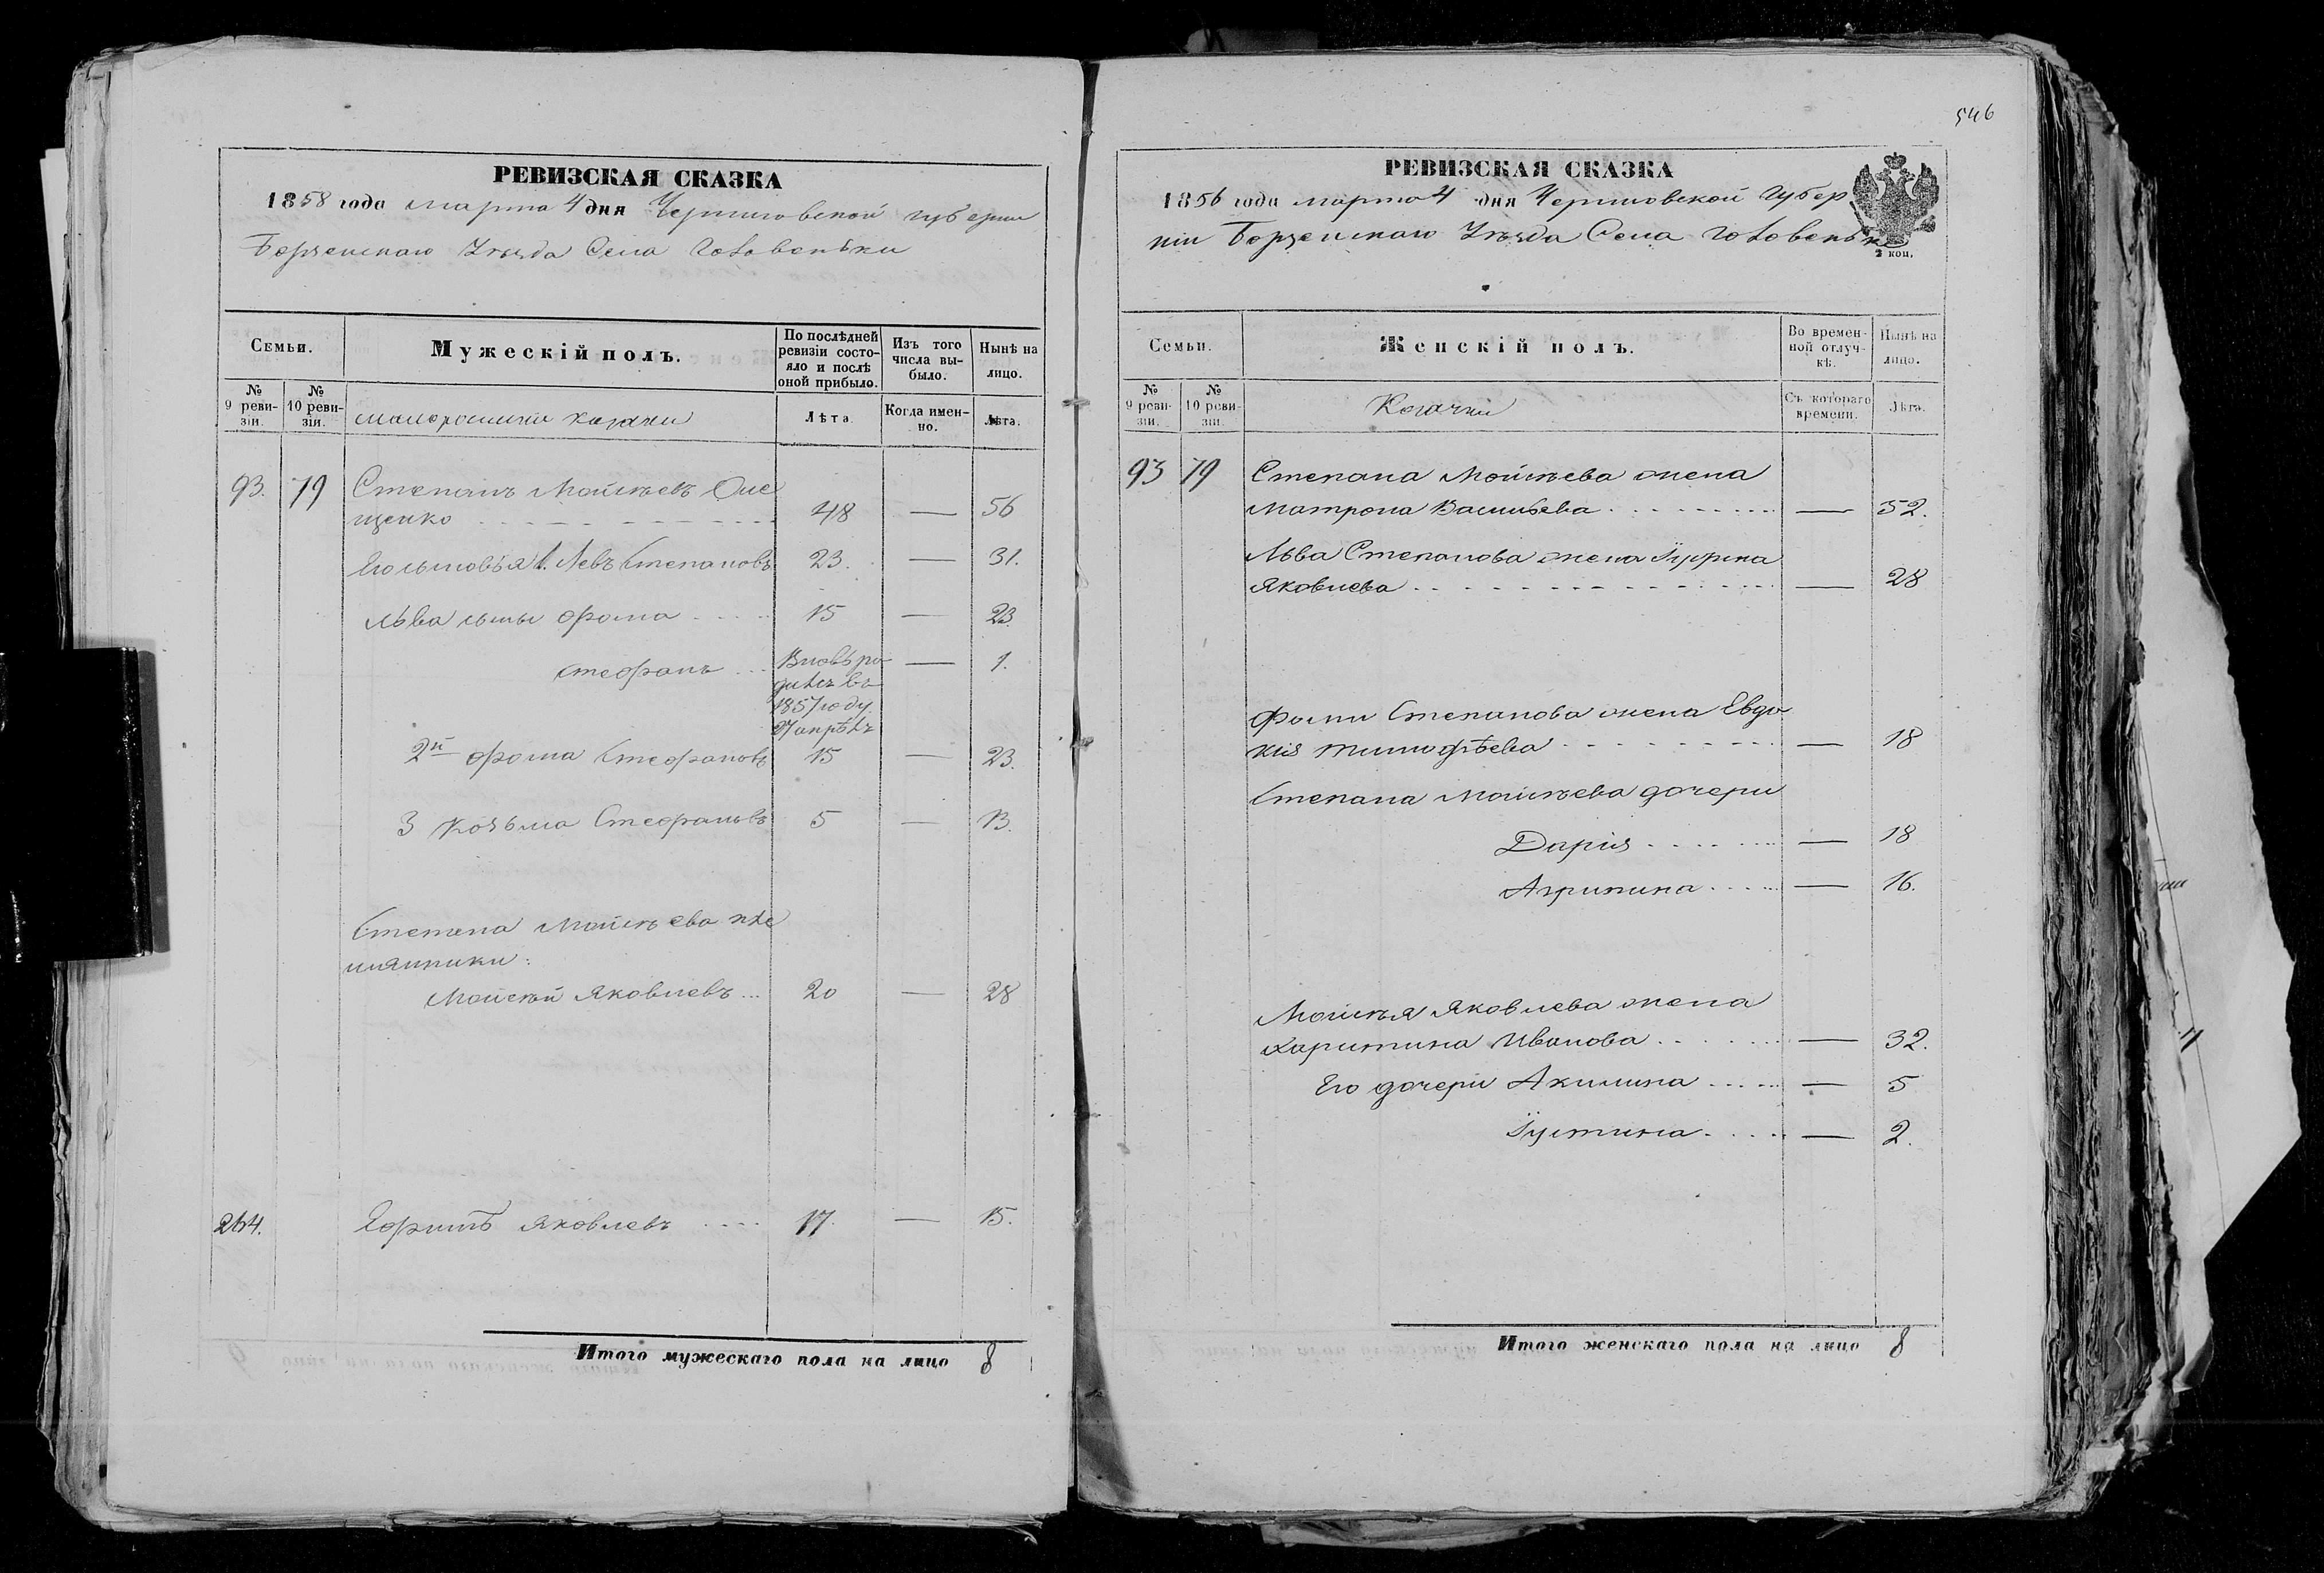 РЕВИЗСКАЯ СКАЗКА
1858 года марта 4 дня Черниговской губернии
Борзенскаго Уѣзда Села Головеньки
Семьи.
Мужескій полъ.
По послѣдней ревизіи состояло и послѣ оной прибыло.
Изъ того числа выбыло.
Нынѣ на лицо.
№ 9 ревизіи.
№ 10 ревизіи.
малоросийски казаки
Лѣта.
Когда именно.
Лѣта.
93. 79 Степанъ Мойсѣевъ Оне
щенко 48 — 56
Его сыновья 1. Левъ Степановъ 23. — 31.
Льва сыны Фома 15 — 23.
Стефанъ Вновь ро — 1.
дился въ
1857 году
27 апрѣля
2й Фома Стефановъ 15 — 23.
3 Козьма Стефановъ 5 — 13.
Степана Мойсѣева пле
мянники:
Мойсѣй Яковлевъ 20 — 28
264. Ефимъ Яковлевъ 17. — 15.
Итого мужескаго пола на лицо 8
546
РЕВИЗСКАЯ СКАЗКА
1856 года марта 4 дня Черниговской Губер
ніи Борзенскаго Уѣзда Села Головеньки
2 коп.
Семьи.
Женскій полъ.
Во временной отлучкѣ.
Нынѣ на лицо.
№ 9 ревизіи.
№ 10 ревизіи.
Козачки
Съ котораго времени.
Лѣта.
93 79 Степана Мойсѣева жена
Матрона Васильева — 52.
Льва Степанова жена
Яковлева — 28
Фомы Степанова жена Евдо
кія Тимофѣева — 18
Степана Мойсѣева дочери
Дарія — 18
Агрипина — 16.
Мойсѣя Яковлева жена
Харитина Иванова — 32.
Его дочери Акилина — 5
Іустина — 2.
Итого женскаго пола на лицо 8